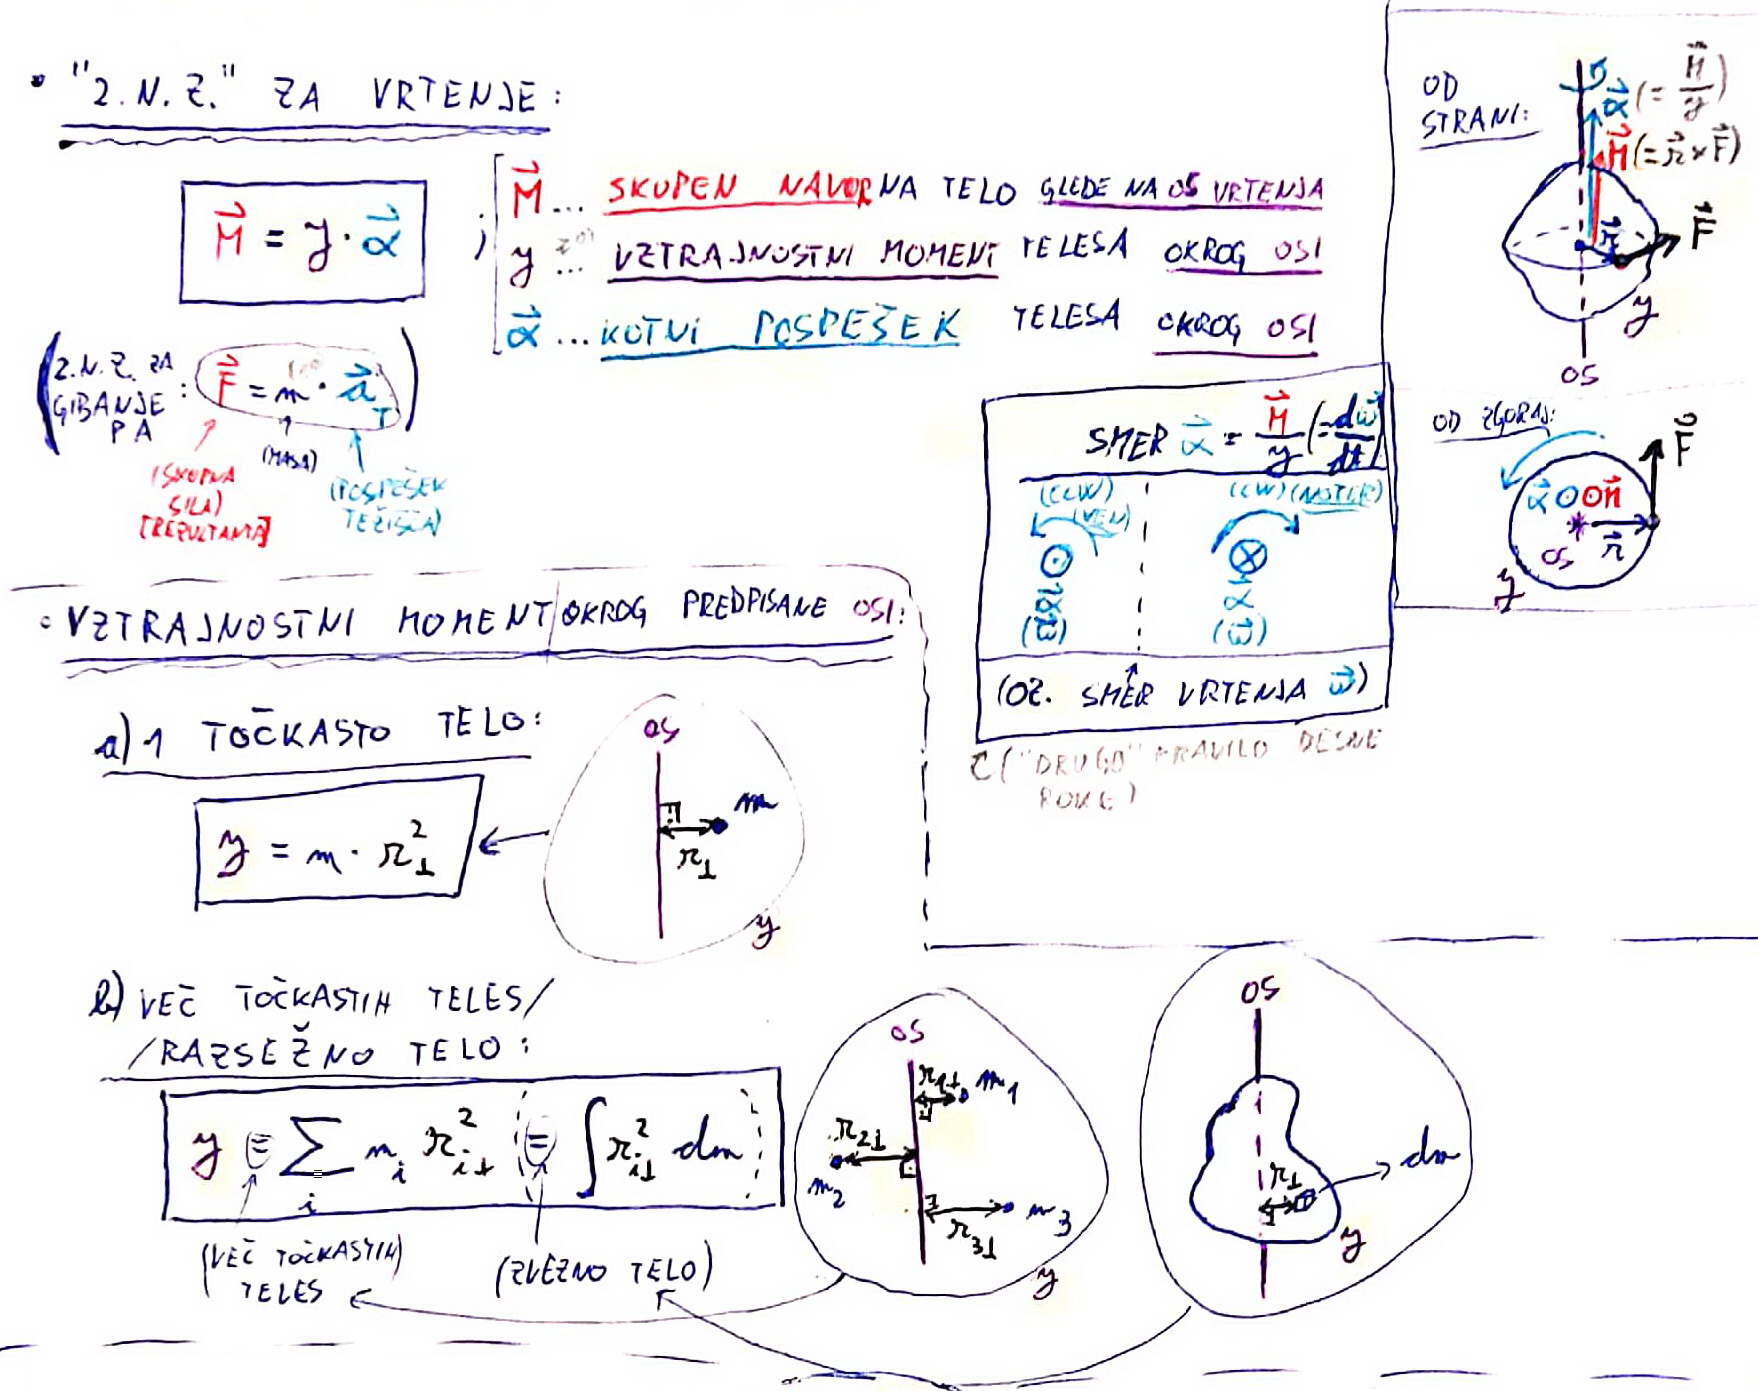 • "2.N.Z." ZA VRTENJE:
M⃗ = y · α⃗ ;
M⃗ ... SKUPEN NAVOR NA TELO GLEDE NA OS VRTENJA
y ... VZTRAJNOSTNI MOMENT TELESA OKROG OSI
α⃗ ... KOTNI POSPEŠEK TELESA OKROG OSI
(2.N.Z. ZA GIBANJE PA : F⃗ = m · a⃗_T)
(SKUPNA SILA) [REZULTANTA]
(MASA)
(POSPEŠEK TEŽIŠČA)
OD STRANI:
α⃗ (= M⃗/y)
M⃗ (= r⃗ × F⃗)
r⃗
F⃗
y
OS
OD ZGORAJ:
F⃗
α⃗ ⊙ ⊙ M⃗
OS
r⃗
y
SMER α⃗ = M⃗/y (= dω⃗/dt)
(CCW) (VEN)
(CW) (NOTER)
⊙ α⃗ (ω⃗)
⊗ α⃗ (ω⃗)
(OZ. SMER VRTENJA ω⃗)
("DRUGO" PRAVILO DESNE
ROKE)
• VZTRAJNOSTNI MOMENT OKROG PREDPISANE OSI:
a) 1 TOČKASTO TELO:
y = m · r⊥²
OS
m
r⊥
y
b) VEČ TOČKASTIH TELES/
/RAZSEŽNO TELO:
y = ∑_i m_i r_i⊥² (= ∫ r_i⊥² dm)
(VEČ TOČKASTIH)
TELES
(ZVEZNO TELO)
OS
r_1⊥ m_1
r_2⊥
m_2
r_3⊥ m_3
y
OS
r⊥
dm
y